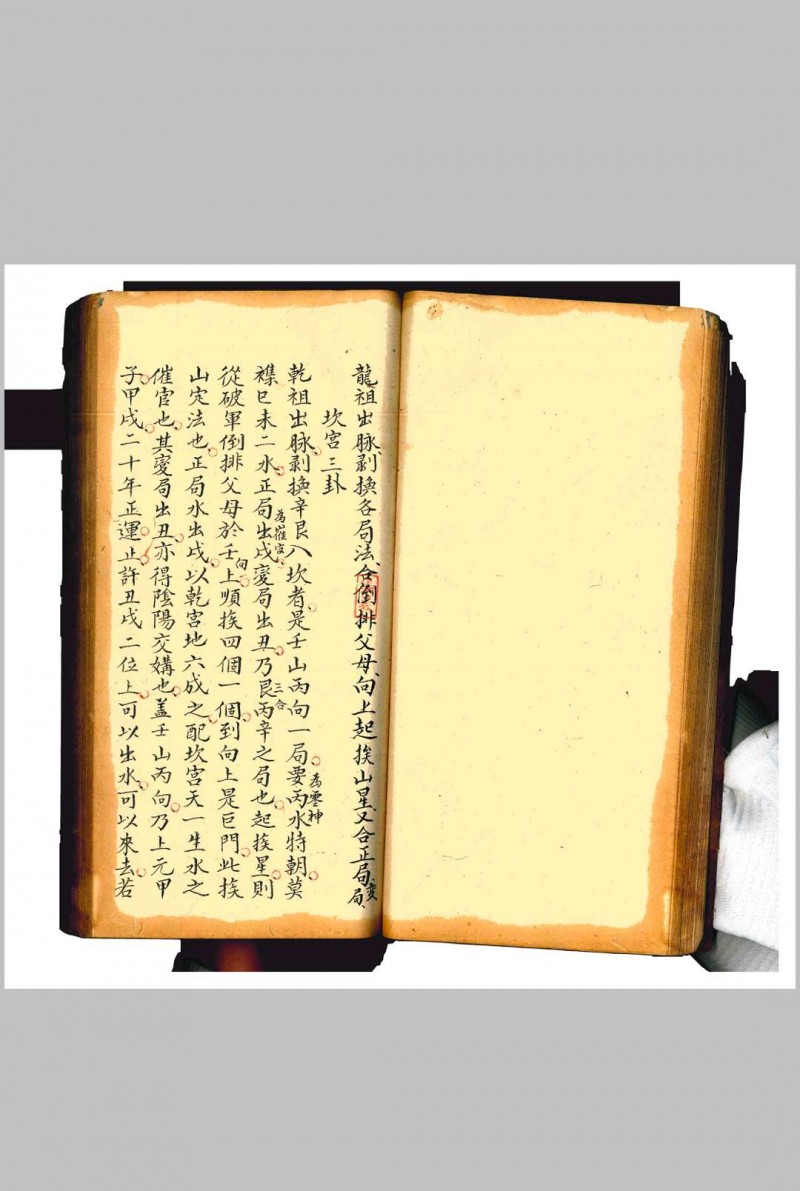 龍祖出脉剥換各局法合倒排父母向上起挨山星又合正局變局
坎宮三卦
乾祖出脉剥換辛艮入坎者是壬山丙向一局要丙水特朝莫
為零神
襍巳未二水正局出戌變局出丑乃艮丙辛之局也起挨星則
為崔官
三合
從破軍倒排父母於壬上順挨四個一個到向上是巨門此挨
向
山定法也正局水出戌以乾宮地六成之配坎宮天一生水之
催官也其變局出丑亦得陰陽交媾也盖壬山丙向乃上元甲
子甲戌二十年正運止許丑戌二位上可以出水可以來去若